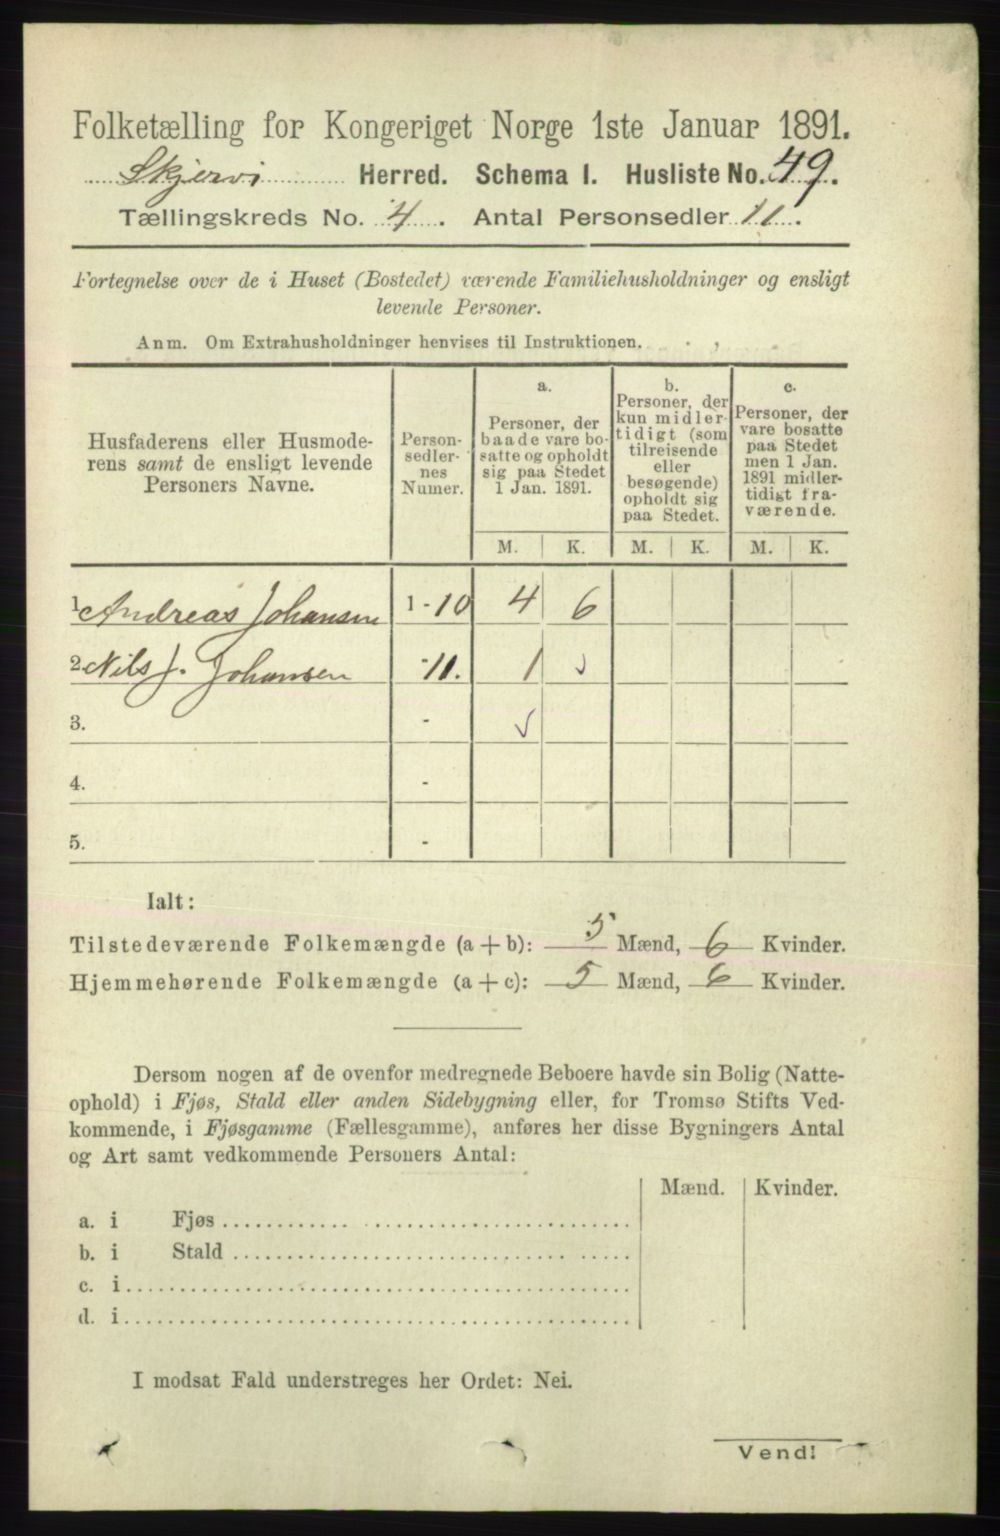 Folketælling for Kongeriget Norge 1ste Januar 1891.
Skjervi Herred. Schema I. Husliste No. 49.
Tællingskreds No. 4. Antal Personsedler 11.
Fortegnelse over de i Huset (Bostedet) værende Familiehusholdninger og ensligt
levende Personer.
Anm. Om Extrahusholdninger henvises til Instruktionen.
Husfaderens eller Husmode-
rens samt de ensligt levende
Personers Navne.
Person-
sedler-
nes
Numer.
a.
Personer, der
baade vare bo-
satte og opholdt
sig paa Stedet
1 Jan. 1891.
b.
Personer, der
kun midler-
tidigt (som
tilreisende
eller
besøgende)
opholdt sig
paa Stedet.
c.
Personer, der
vare bosatte
paa Stedet
men 1 Jan.
1891 midler-
tidigt fra-
værende.
M. K. M. K. M. K.
1. Andreas Johansen 1-10 4 6
2. Nils J. Johansen -11. 1
3. -
4. -
5. -
Ialt:
Tilstedeværende Folkemængde (a+b): 5 Mænd, 6 Kvinder.
Hjemmehørende Folkemængde (a+c): 5 Mænd, 6 Kvinder.
Dersom nogen af de ovenfor medregnede Beboere havde sin Bolig (Natte-
ophold) i Fjøs, Stald eller anden Sidebygning eller, for Tromsø Stifts Ved-
kommende, i Fjøsgamme (Fællesgamme), anføres her disse Bygningers Antal
og Art samt vedkommende Personers Antal:
Mænd. Kvinder.
a. i Fjøs
b. i Stald
c. i
d. i
I modsat Fald understreges her Ordet: Nei.
Vend!